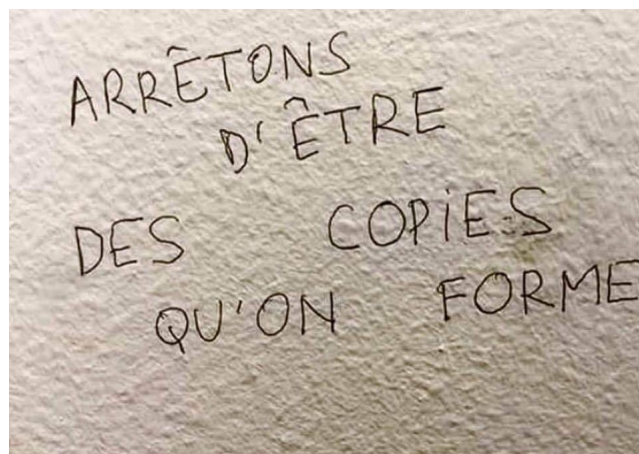 ARRÊTONS
D'ÊTRE
DES COPIES
QU'ON FORME